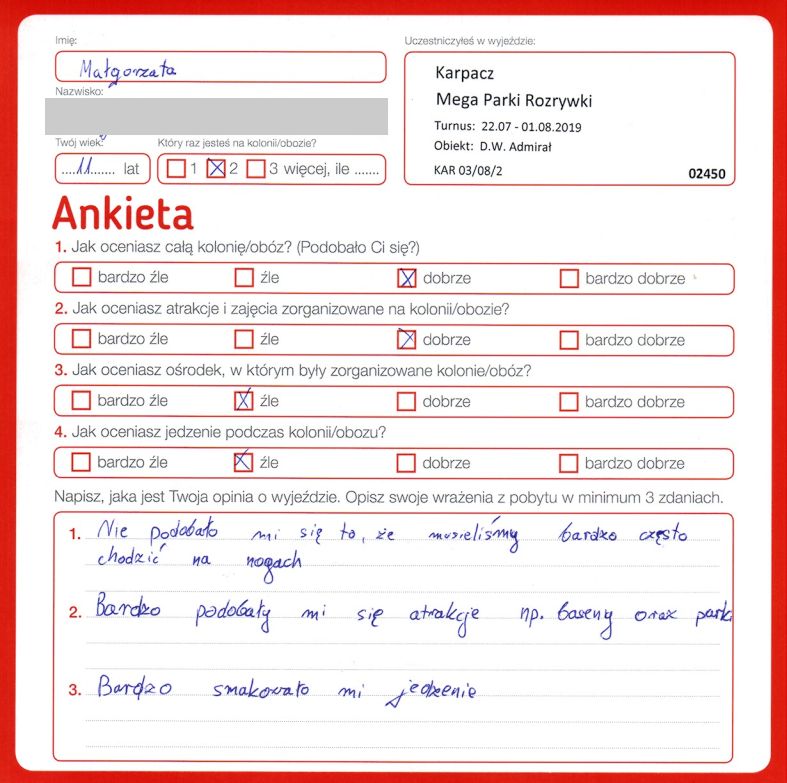 Imię:
Małgorzata
Nazwisko:
Twój wiek:
11 lat
Który raz jesteś na kolonii/obozie?
1 2 3 więcej, ile .......
Uczestniczyłeś w wyjeździe:
Karpacz
Mega Parki Rozrywki
Turnus: 22.07 - 01.08.2019
Obiekt: D.W. Admirał
KAR 03/08/2 02450
Ankieta
1. Jak oceniasz całą kolonię/obóz? (Podobało Ci się?)
bardzo źle źle dobrze bardzo dobrze
2. Jak oceniasz atrakcje i zajęcia zorganizowane na kolonii/obozie?
bardzo źle źle dobrze bardzo dobrze
3. Jak oceniasz ośrodek, w którym były zorganizowane kolonie/obóz?
bardzo źle źle dobrze bardzo dobrze
4. Jak oceniasz jedzenie podczas kolonii/obozu?
bardzo źle źle dobrze bardzo dobrze
Napisz, jaka jest Twoja opinia o wyjeździe. Opisz swoje wrażenia z pobytu w minimum 3 zdaniach.
1. Nie podobało mi się to, że musieliśmy bardzo często
chodzić na nogach
2. Bardzo podobały mi się atrakcje np. baseny oraz parki
3. Bardzo smakowało mi jedzenie